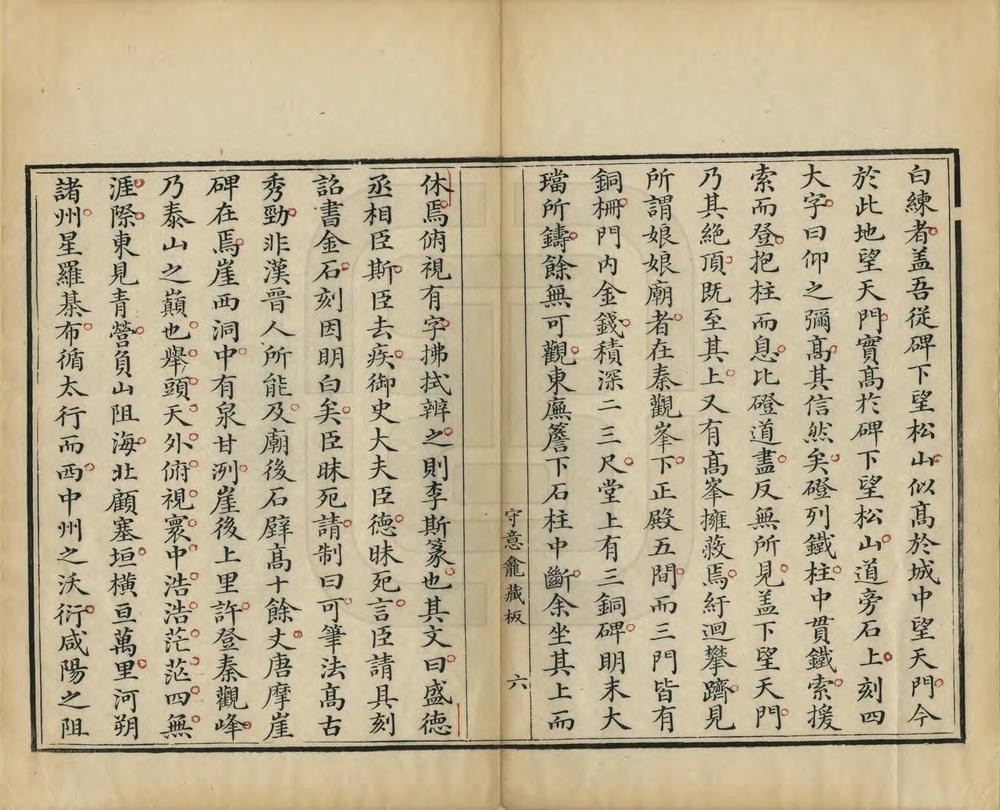 白練者盖吾從碑下望松山似髙於城中望天門今
於此地望天門實髙於碑下望松山道旁石上刻四
大字曰仰之彌髙其信然矣磴列鐵柱中貫鐵索援
索而登抱柱而息比磴道盡反無所見盖下望天門
乃其絶頂既至其上又有髙峯擁蔽焉紆迴攀躋見
所謂娘娘廟者在秦觀峯下正殿五間而三門皆有
銅柵門内金錢積深二三尺堂上有三銅碑明末大
璫所鑄餘無可觀東廡簷下石柱中斷余坐其上而
守意龕藏板
六
休焉俯視有字拂拭辨之則李斯篆也其文曰盛德
丞相臣斯臣去疾御史大夫臣德昧死言臣請具刻
詔書金石刻因明白矣臣昧死請制曰可筆法髙古
秀勁非漢晉人所能及廟後石壁髙十餘丈唐摩崖
碑在焉崖西洞中有泉甘洌崖後上里許登秦觀峰
乃泰山之巔也舉頭天外俯視寰中浩浩茫茫四無
涯際東見青營負山阻海北顧塞垣横亘萬里河朔
諸州星羅棊布循太行而西中州之沃衍咸陽之阻